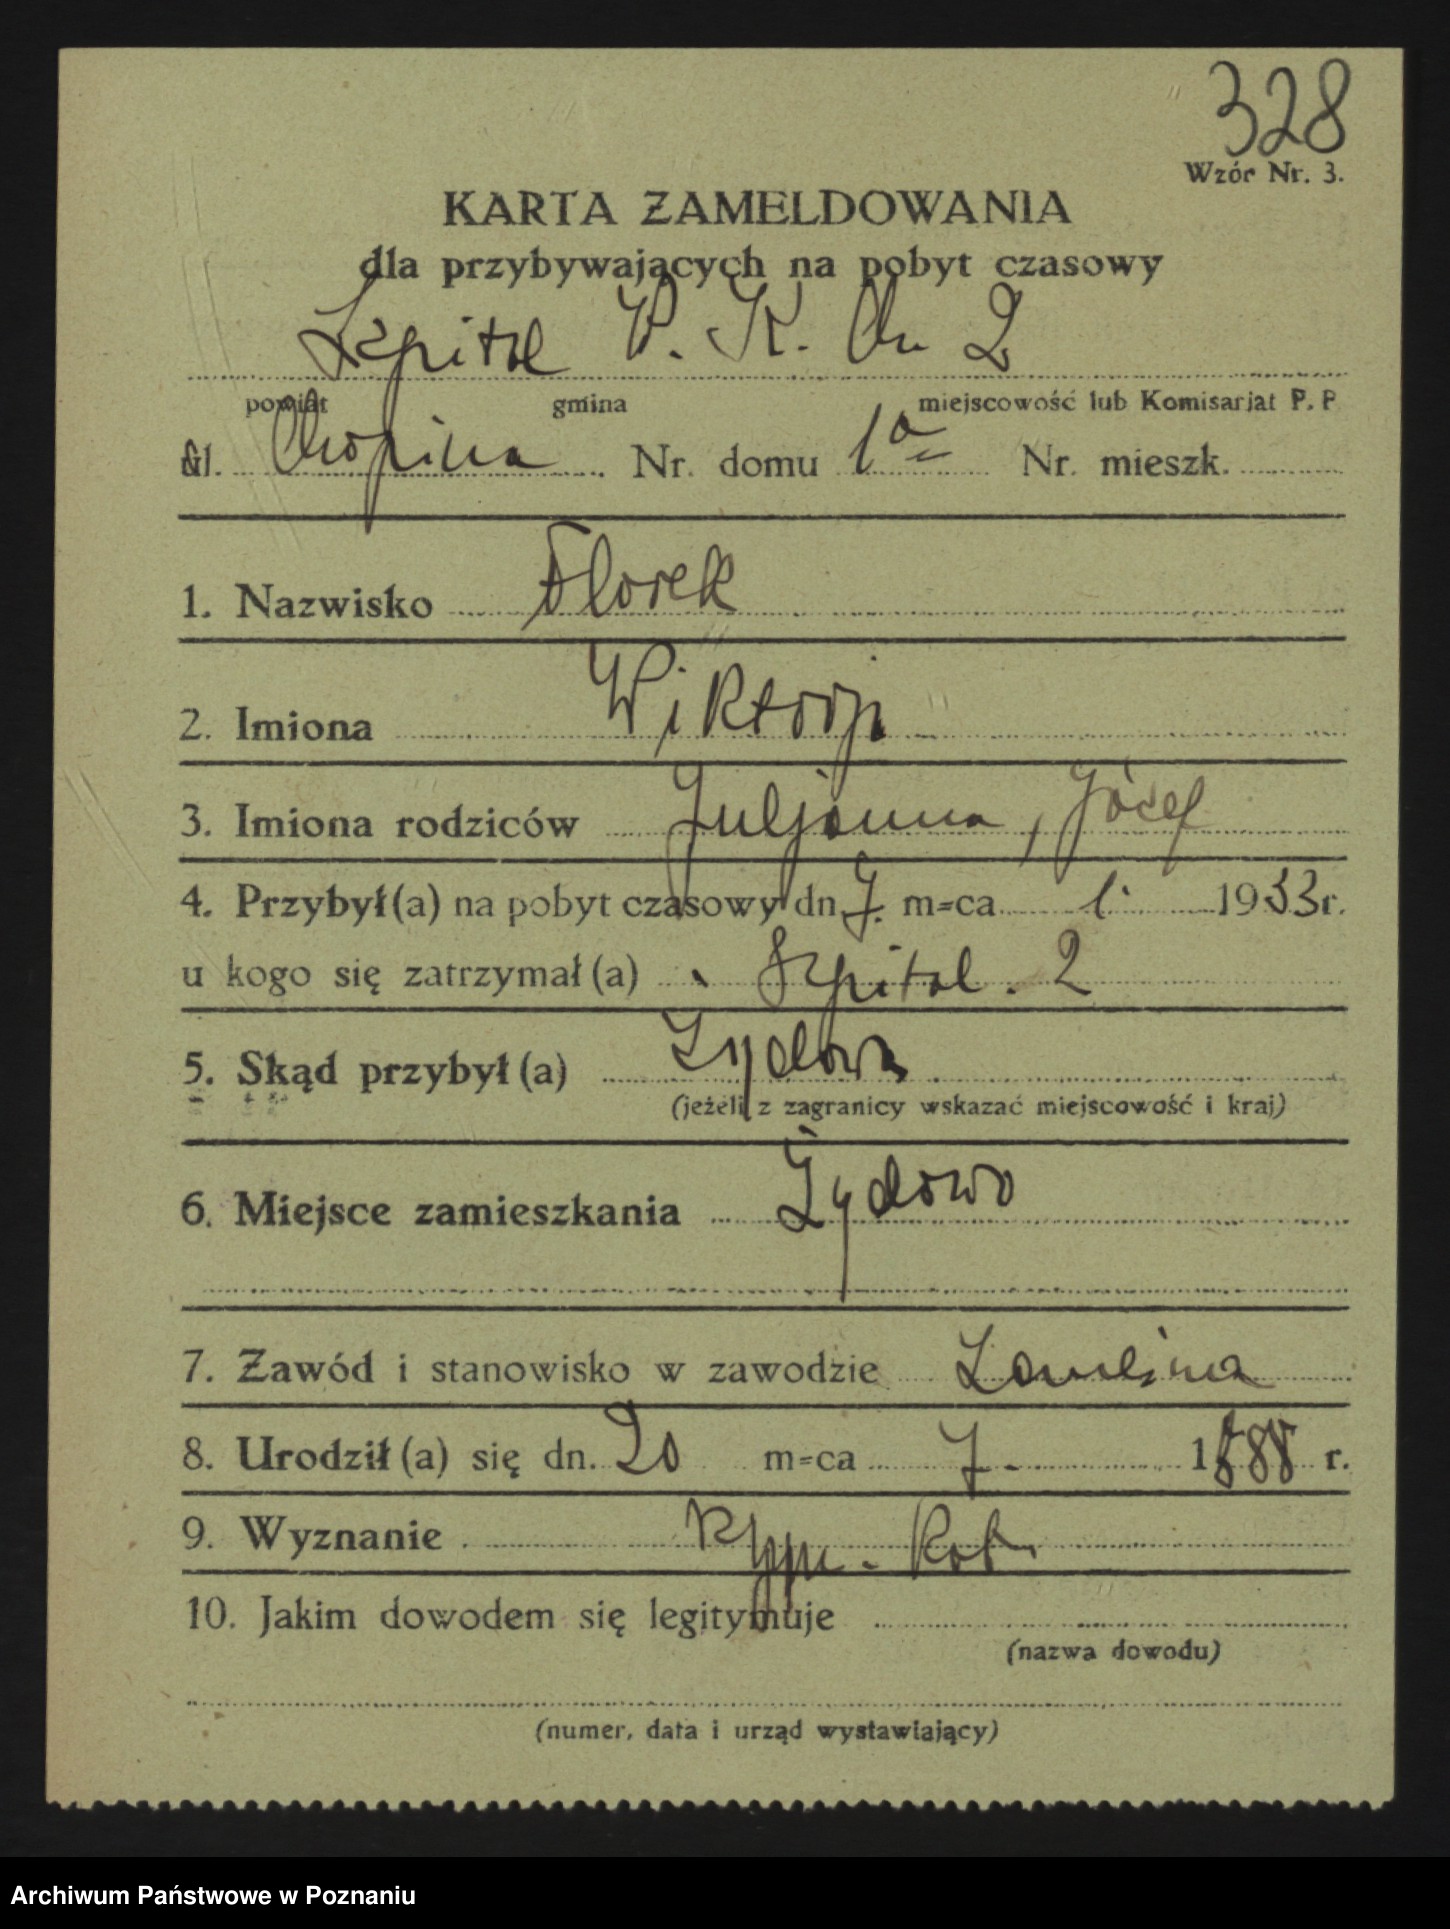 328
Wzór Nr. 3.
KARTA ZAMELDOWANIA
dla przybywających na pobyt czasowy
Szpital P. K. Ch 2
powiat gmina miejscowość lub Komisarjat P. P
Ul. Chopina Nr. domu 1a Nr. mieszk.
1. Nazwisko Florek
2. Imiona Wiktorja
3. Imiona rodziców Juljanna, Józef
4. Przybył(a) na pobyt czasowy dn 7. m=ca 1. 1933 r.
u kogo się zatrzymał(a) Szpital. 2
5. Skąd przybył(a) Żydowa
(jeżeli z zagranicy wskazać miejscowość i kraj)
6. Miejsce zamieszkania Żydowo
7. Zawód i stanowisko w zawodzie
8. Urodził(a) się dn. 20 m=ca 7. 1888 r.
9. Wyznanie Rzym. Kat.
10. Jakim dowodem się legitymuje
(nazwa dowodu)
(numer, data i urząd wystawiający)
Archiwum Państwowe w Poznaniu